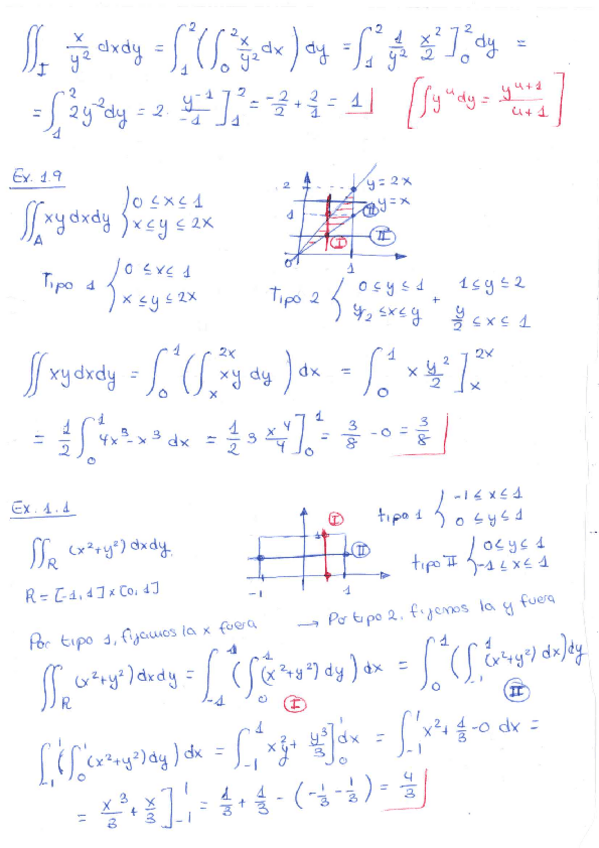 ∬_I x/y² dxdy = ∫₁² (∫₀² x/y² dx) dy = ∫₁² 1/y² x²/2 ]₀² dy =
= ∫₁² 2y⁻²dy = 2 · y⁻¹/-1 ]₁² = -2/2 + 2/1 = 1 [∫yᵘ dy = yᵘ⁺¹/u+1]
Ex. 1.9
∬_A xy dxdy { 0 ≤ x ≤ 1
x ≤ y ≤ 2x
2 1 0 1 y=2x y=x I II II
Tipo 1 { 0 ≤ x ≤ 1
x ≤ y ≤ 2x
Tipo 2 { 0 ≤ y ≤ 1 + 1 ≤ y ≤ 2
y/2 ≤ x ≤ y y/2 ≤ x ≤ 1
∬ xy dxdy = ∫₀¹ (∫ₓ²ˣ xy dy) dx = ∫₀¹ x y²/2 ]ₓ²ˣ
= 1/2 ∫₀¹ 4x³ - x³ dx = 1/2 3 x⁴/4 ]₀¹ = 3/8 - 0 = 3/8
Ex. 1.1
∬_R (x²+y²) dxdy.
R = [-1,1] x [0,1]
1 I II -1 1
tipo 1 { -1 ≤ x ≤ 1
0 ≤ y ≤ 1
tipo II { 0 ≤ y ≤ 1
-1 ≤ x ≤ 1
Por tipo 1, fijamos la x fuera → Por tipo 2, fijamos la y fuera
∬_R (x²+y²) dxdy = ∫₋₁¹ (∫₀¹ (x²+y²) dy) dx = ∫₀¹ (∫₋₁¹ (x²+y²) dx) dy
I II
∫₋₁¹ (∫₀¹ (x²+y²) dy) dx = ∫₋₁¹ x²y + y³/3 ]₀¹ dx = ∫₋₁¹ x² + 1/3 - 0 dx =
= x³/3 + x/3 ]₋₁¹ = 1/3 + 1/3 - (-1/3 - 1/3) = 4/3